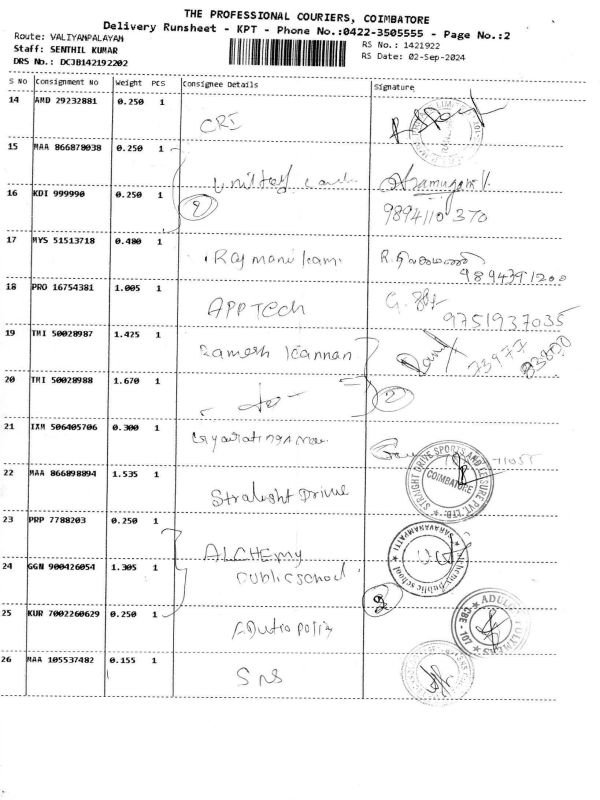 THE PROFESSIONAL COURIERS, COIMBATORE
Delivery Runsheet - KPT - Phone No.:0422-3505555 - Page No.:2
Route: VALIYAMPALAYAM
RS No.: 1421922
Staff: SENTHIL KUMAR
RS Date: 02-Sep-2024
DRS No.: DCJB142192202
S No Consignment No Weight PCS Consignee Details Signature
14 AMD 29232881 0.250 1
CRI
15 MAA 866878038 0.250 1
16 KDI 999990 0.250 1
2
9894110370
17 MYS 51513718 0.480 1
Raj manikam
9894391200
18 PRO 16754381 1.005 1
APPTech
9751937035
19 TMI 50028987 1.425 1
Ramesh Kannan
73977
20 TMI 50028988 1.670 1
- do -
2
21 IXM 506405706 0.300 1
71055
22 MAA 866898894 1.535 1
Straight Drive
STRAIGHT DRIVE SPORTS AND LEISURE PVT. LTD.
COIMBATORE
23 PRP 7788203 0.250 1
ALCHEMY
public school
SARAVANAMPATTI
24 GGN 900426054 1.305 1
2
25 KUR 7002260629 0.250 1
26 MAA 105537482 0.155 1
SNS